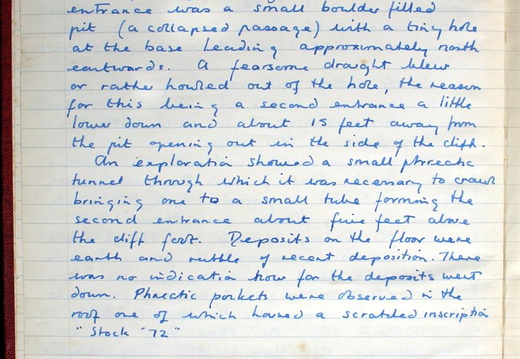 entrance was a small boulder filled
pit (a collapsed passage) with a tiny hole
at the base leading approximately north
eastwards. A fearsome draught blew
or rather howled out of the hole, the reason
for this being a second entrance a little
lower down and about 15 feet away from
the pit opening out in the side of the cliff.
An exploration showed a small phreatic
tunnel through which it was necessary to crawl
bringing one to a small tube forming the
second entrance about five feet above
the cliff foot. Deposits on the floor were
earth and rubble of recent deposition. There
was no indication how far the deposits went
down. Phreatic pockets were observed in the
roof one of which housed a scratched inscription
"Stock '72"